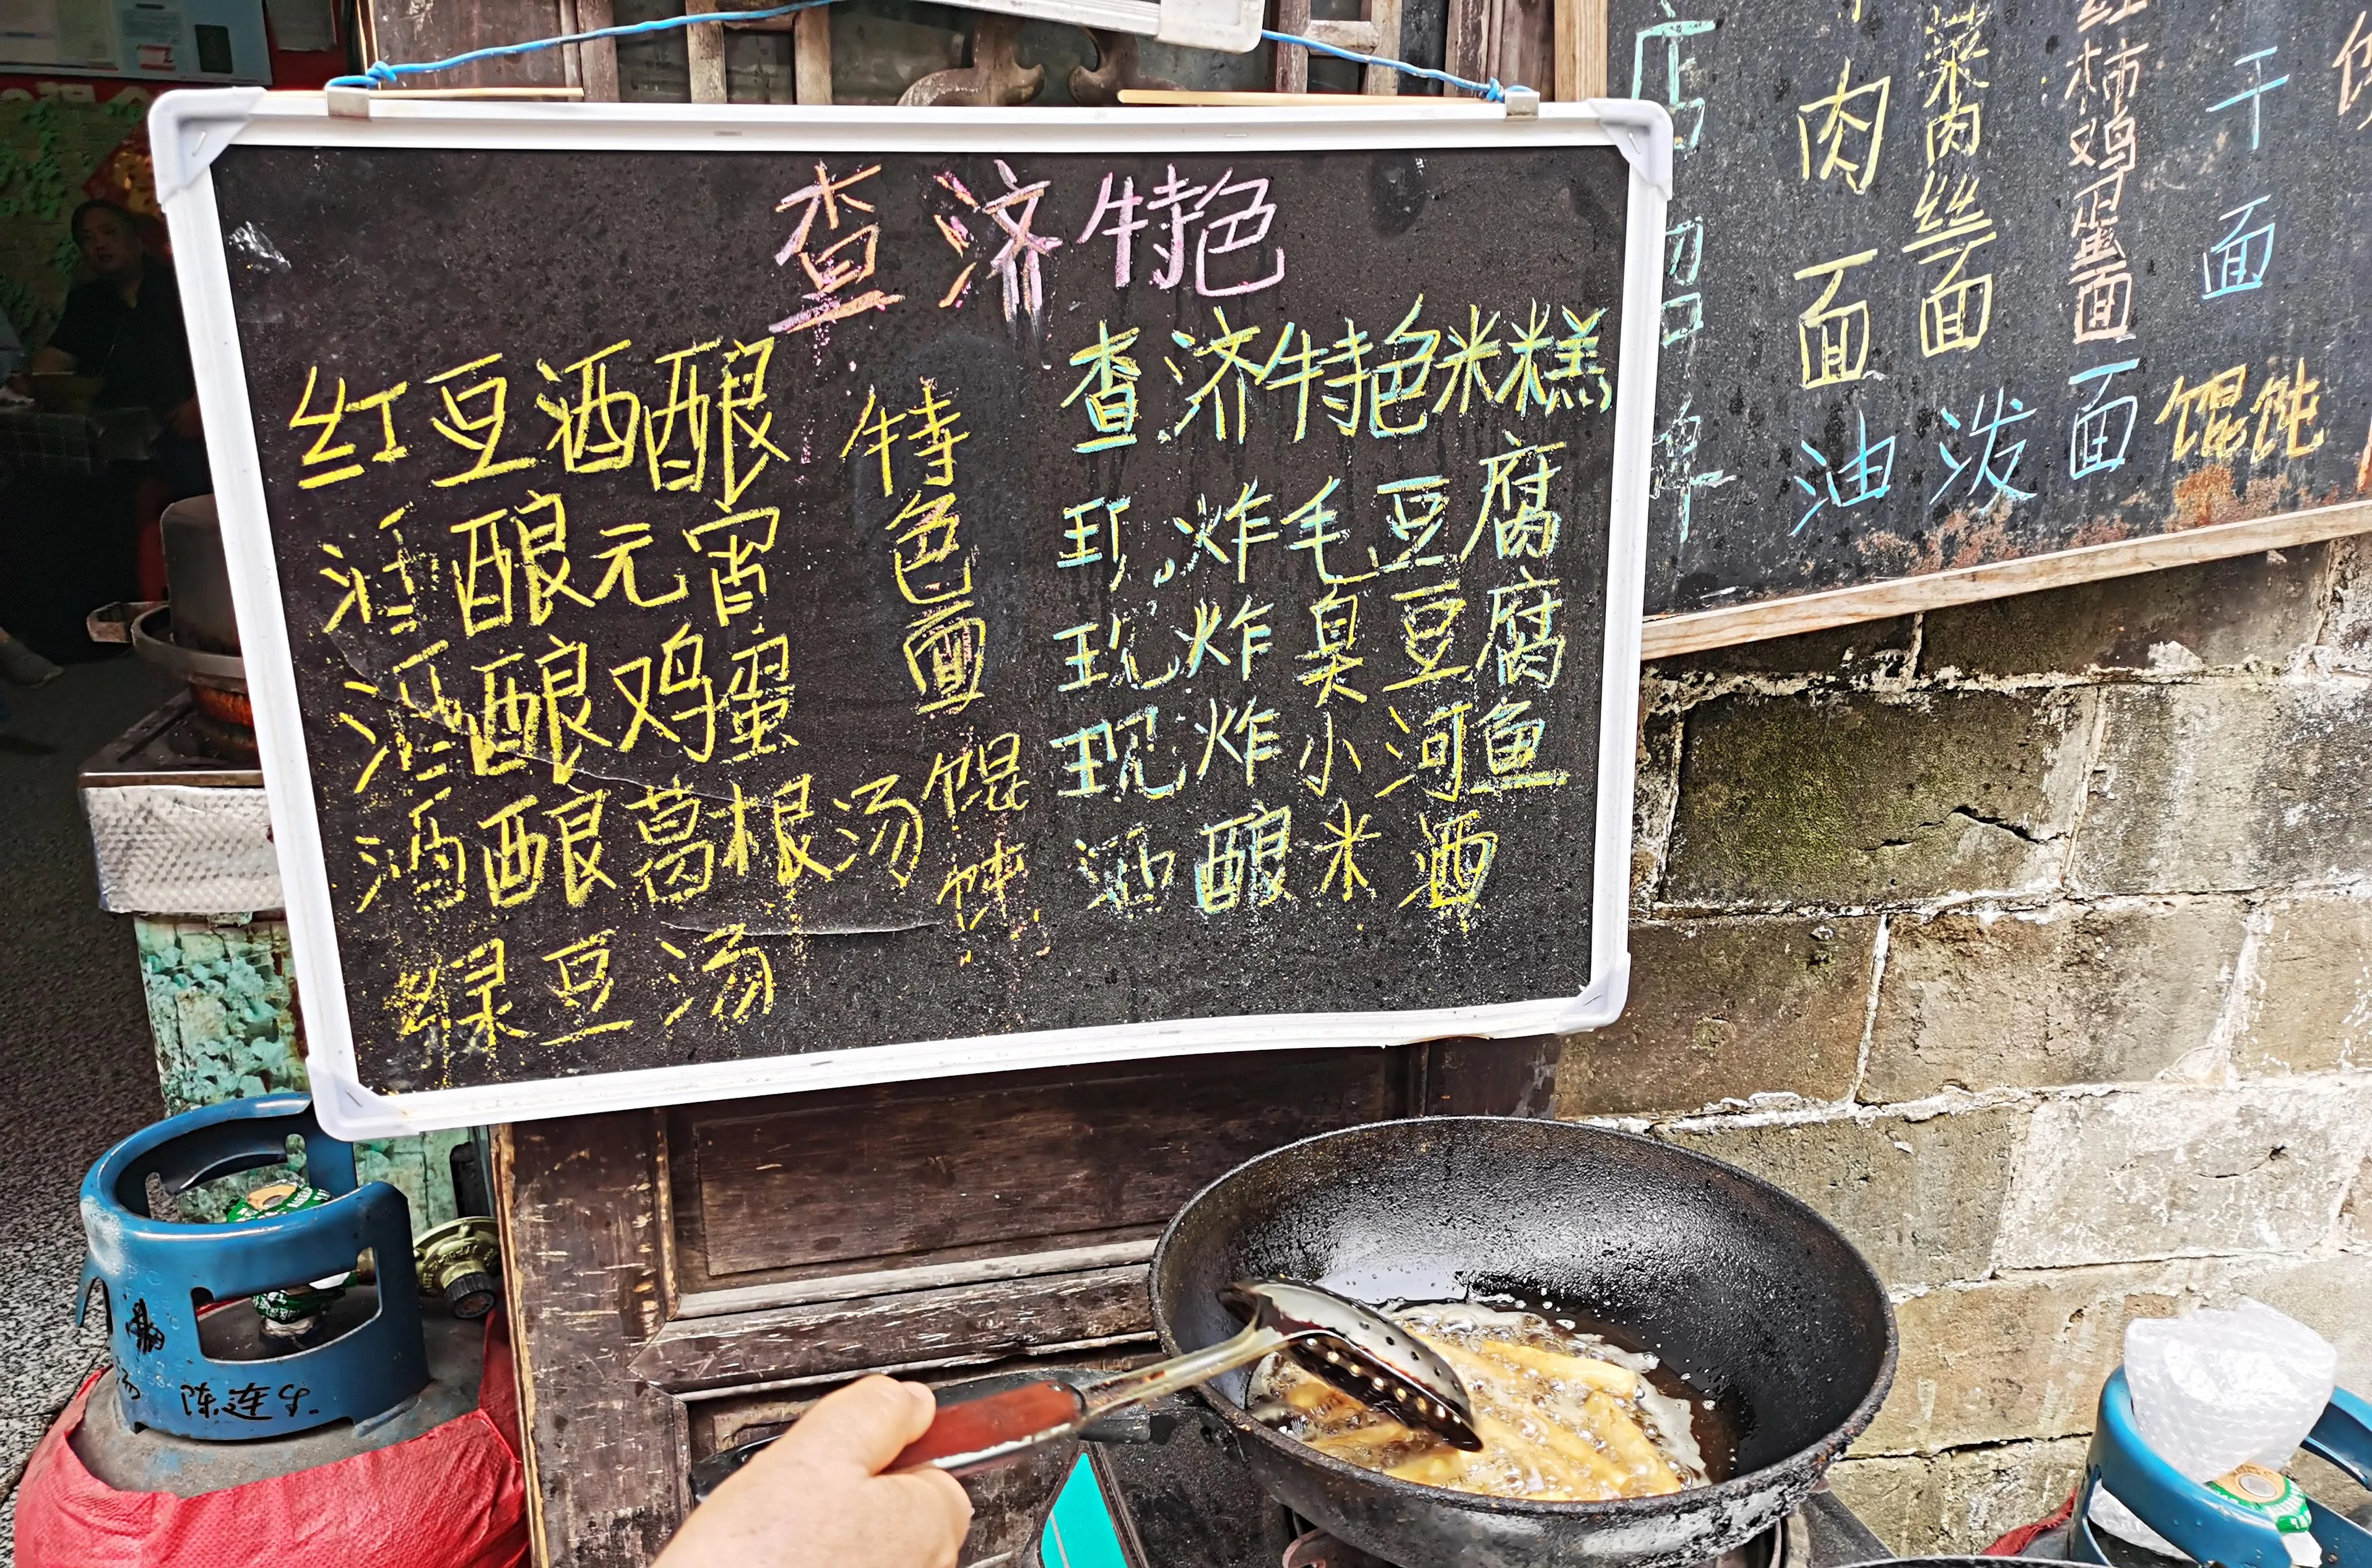 查济特色
红豆酒酿
酒酿元宵
酒酿鸡蛋
酒酿葛根汤
绿豆汤
特色面
馄饨
查济特色米糕
现炸毛豆腐
现炸臭豆腐
现炸小河鱼
酒酿米酒
肉面
菜肉丝面
红柿鸡蛋面
干面
油泼面
馄饨